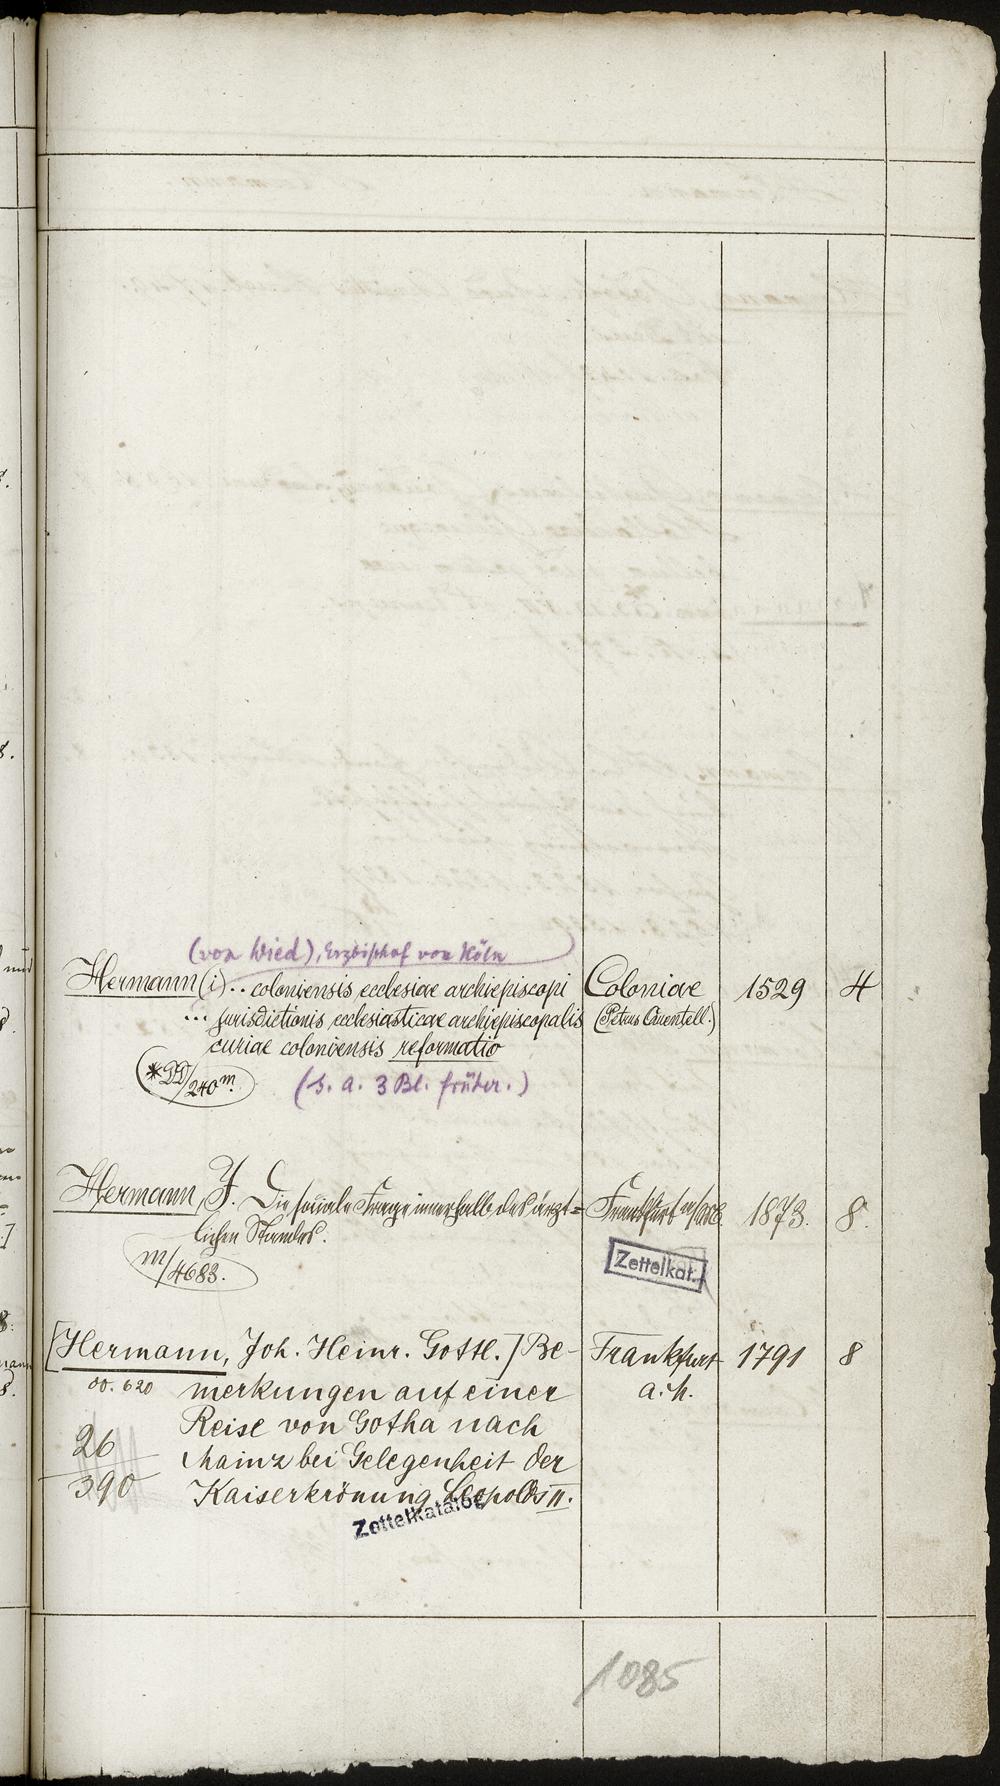 (von Wied), Erzbischof von Köln
Hermann (i) .. coloniensis ecclesiae archiepiscopi Coloniae 1529 4
... jurisdictionis ecclesiasticae archiepiscopalis (Petrus Quentell.)
curiae coloniensis reformatio
*DD/240m.
(s. a. 3 Bl. früher.)
Hermann, F. Die sociale Frage innerhalb des ärzt= Frankfurt 1873. 8.
lichen Standes.
m/4683.
Zettelkat.
[Hermann, Joh. Heinr. Gottl.] Be- Frankfurt 1791 8
00. 620 merkungen auf einer a. h.
Reise von Gotha nach
26 Mainz bei Gelegenheit der
390 Kaiserkrönung Leopolds II.
Zettelkatalog
1085